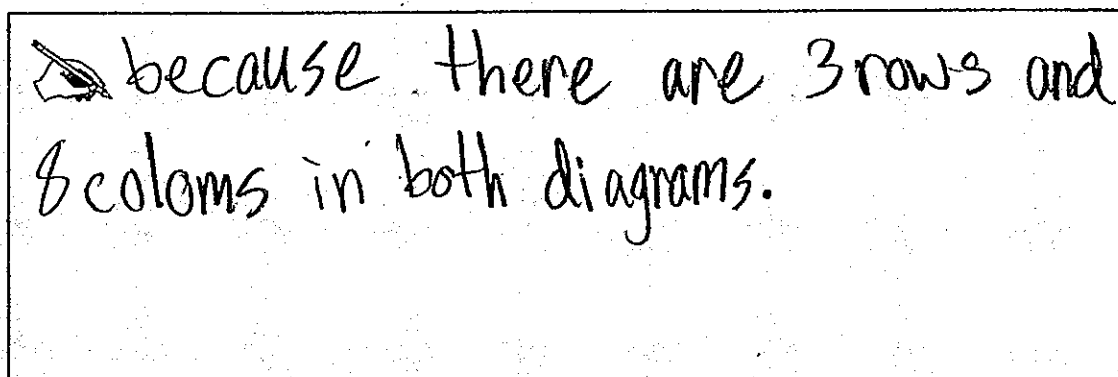 because there are 3 rows and
8 coloms in both diagrams.